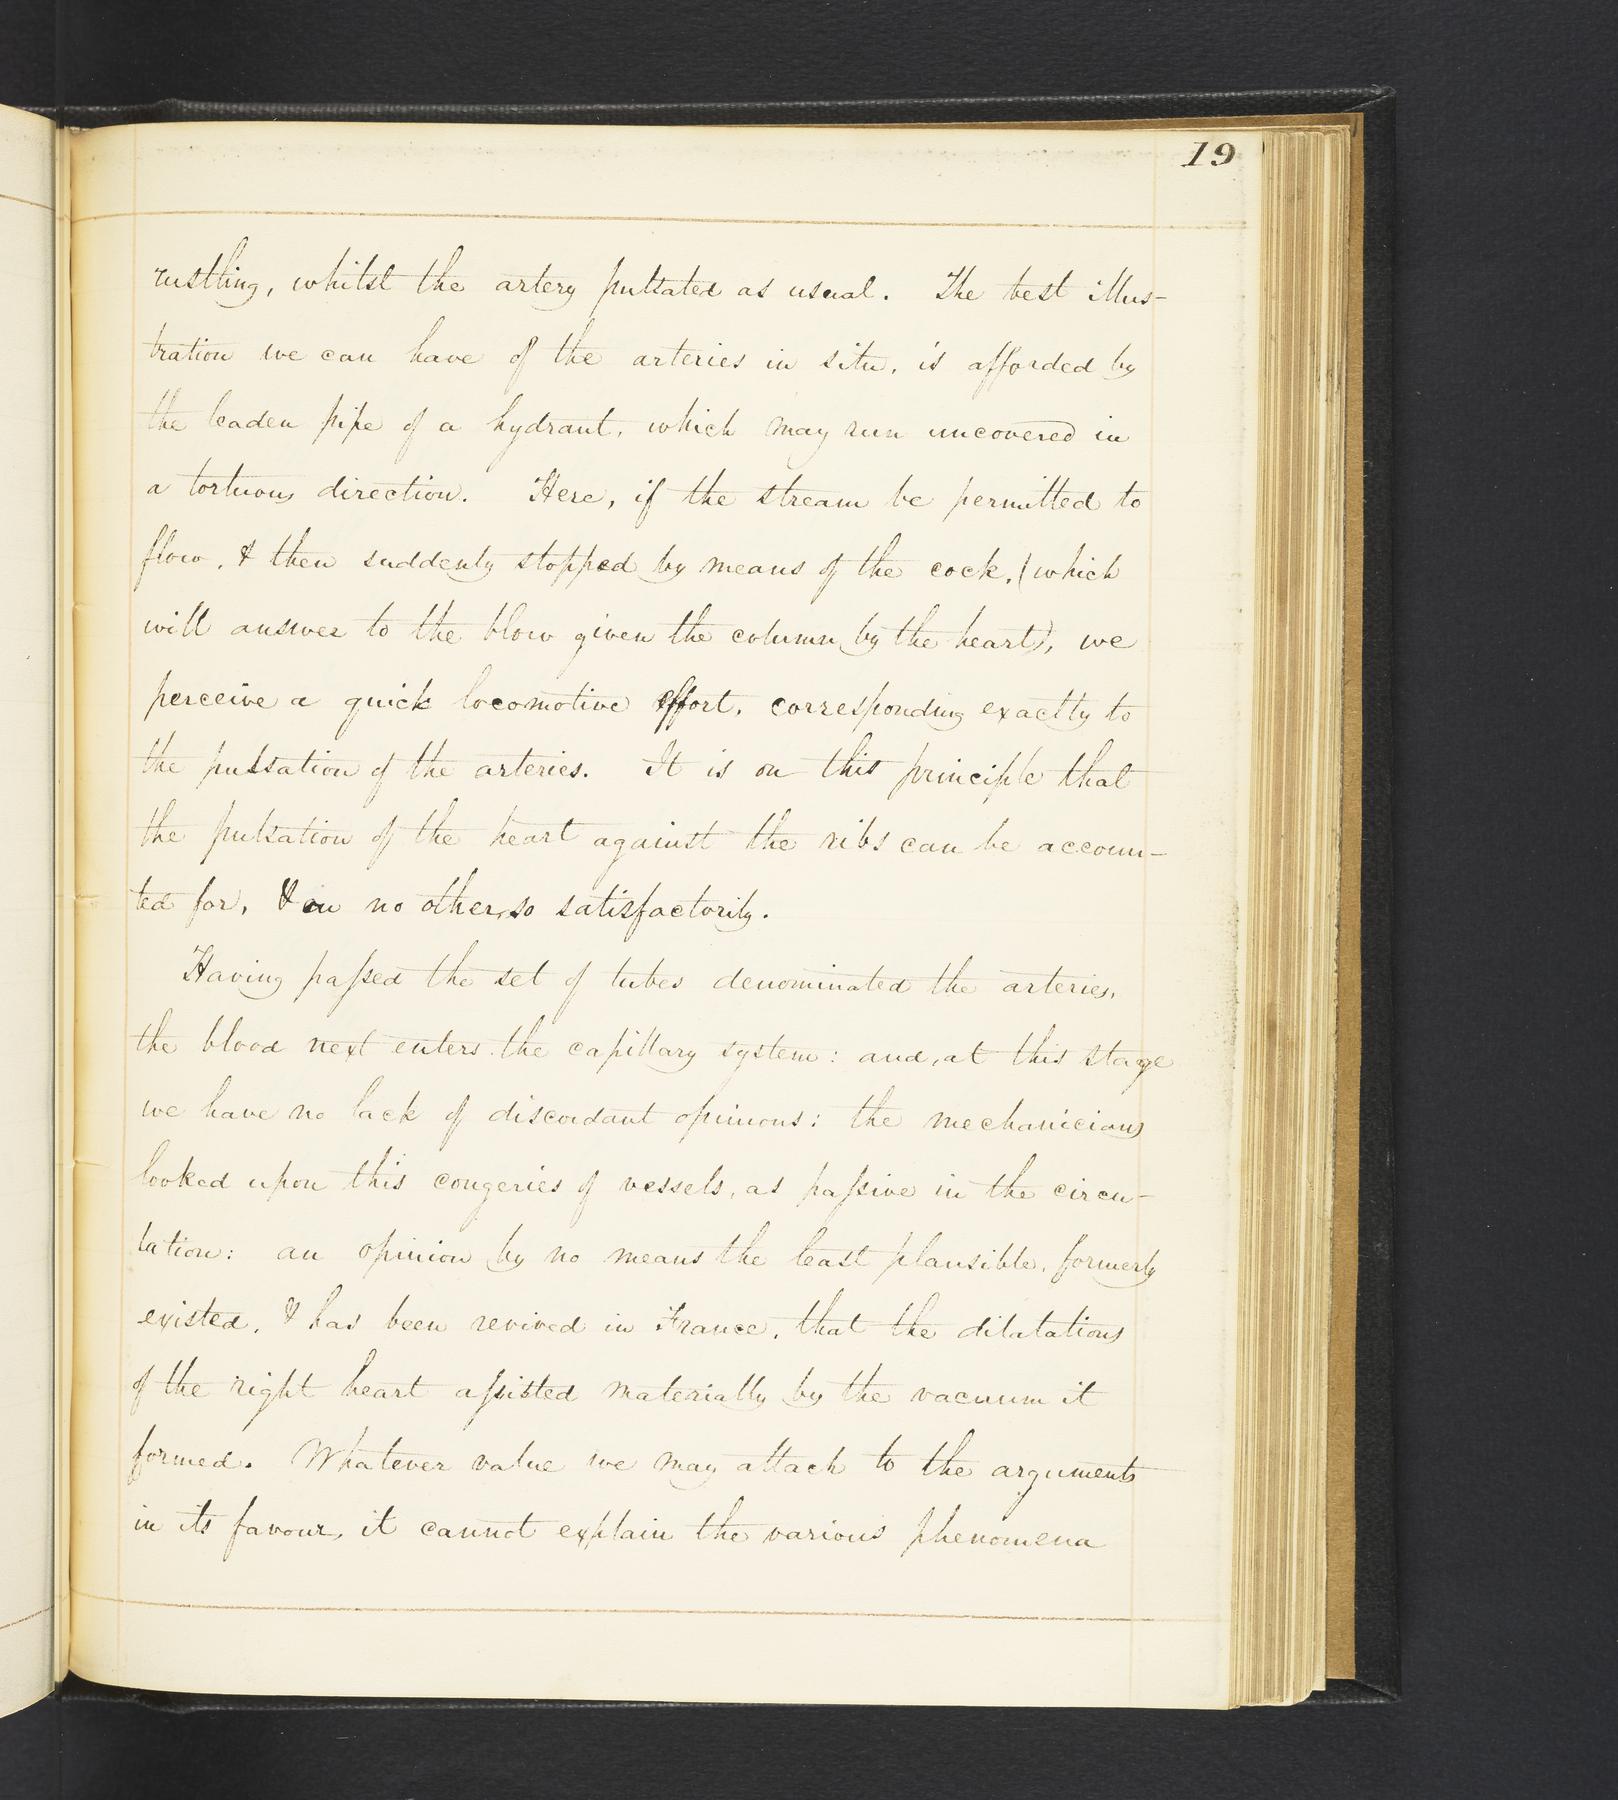 19
rustling, whilst the artery pulsated as usual. The best illus-
tration we can have of the arteries in situ, is afforded by
the leaden pipe of a hydrant, which may run uncovered in
a tortuous direction. Here, if the stream be permitted to
flow, & then suddenly stopped by means of the cock, (which
will answer to the blow given the column by the heart), we
perceive a quick locomotive effort, corresponding exactly to
the pulsation of the arteries. It is on this principle that
the pulsation of the heart against the ribs can be accoun-
ted for, & on no other, so satisfactorily.
Having paſsed the set of tubes denominated the arteries,
the blood next enters the capillary system: and, at this stage
we have no lack of discordant opinions: the mechanicians
looked upon this congeries of vessels, as paſsive in the circu-
lation: an opinion by no means the least plausible, formerly
existed, & has been revived in France, that the dilatations
of the right heart aſsisted materially by the vacuum it
formed. Whatever value we may attach to the arguments
in its favour, it cannot explain the various phenomena